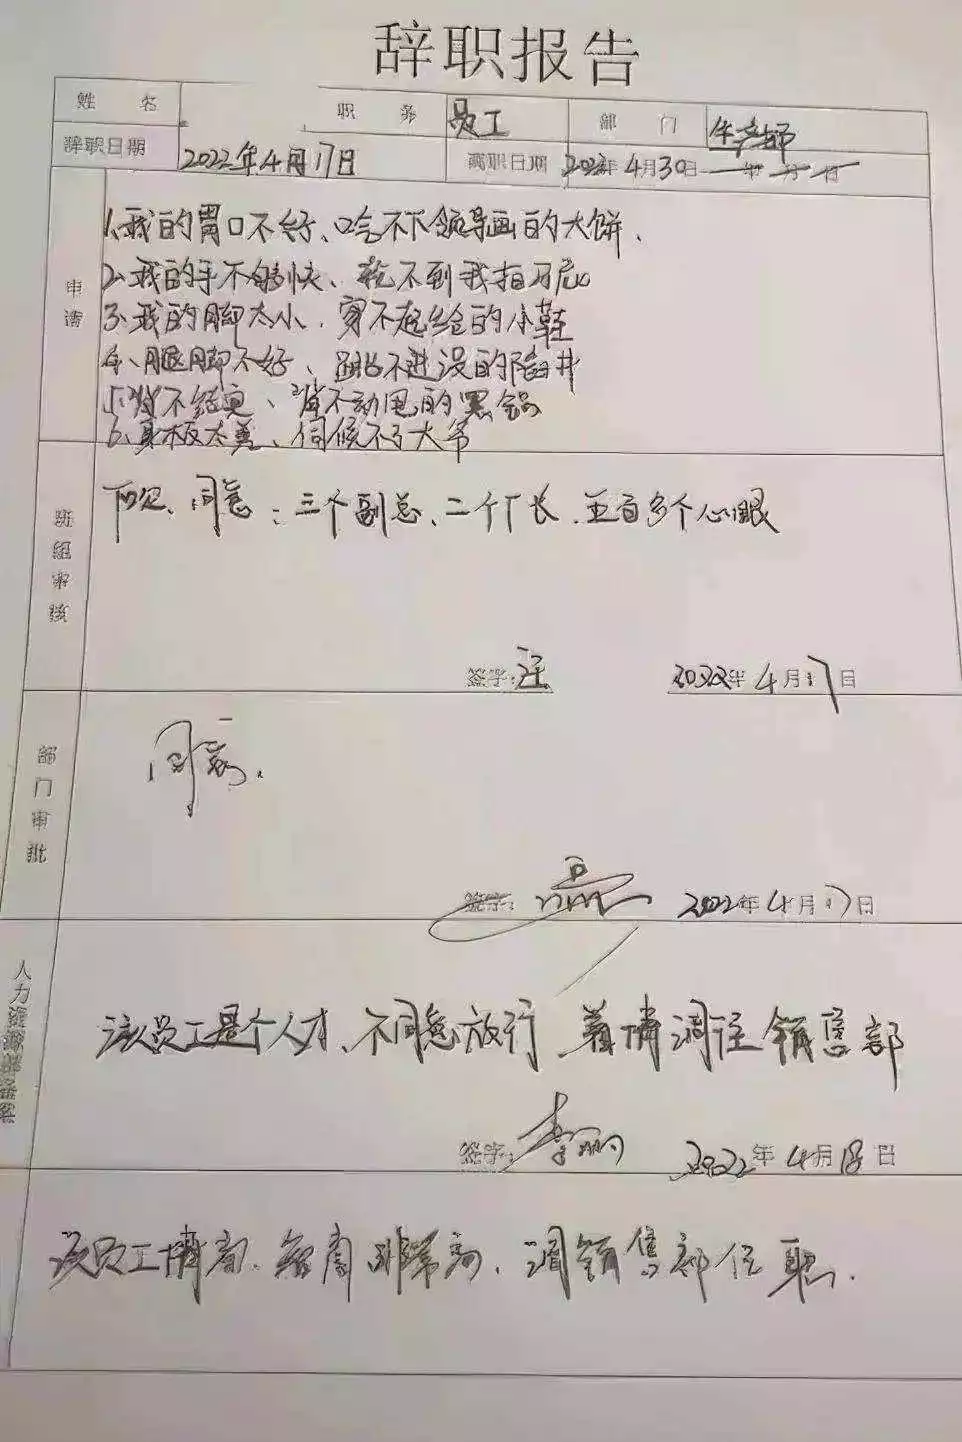 辞职报告
姓 名 职 务 员工 部 门 生产部
辞职日期 2022年4月17日 离职日期 2022年4月30日 年 月 日
申请
1、我的胃口不好、吃不下领导画的大饼、
2、我的手不够快、抢不到我拍马屁
3、我的脚太小、穿不起给的小鞋
4、腿脚不好、跳不进设的陷井
5、背不结实、背不动甩的黑锅
6、身板太直、伺候不了大爷
班组审核
同意：三个副总、二个厂长、五百多个心眼
签字：汪 2022年4月17日
部门审批
同意.
签字： 2022年4月17日
人力资源部
该员工是个人才、不同意放行 着情调往销售部
签字：李丽 2022年4月18日
该员工情商、智商非常高、调销售部任职.